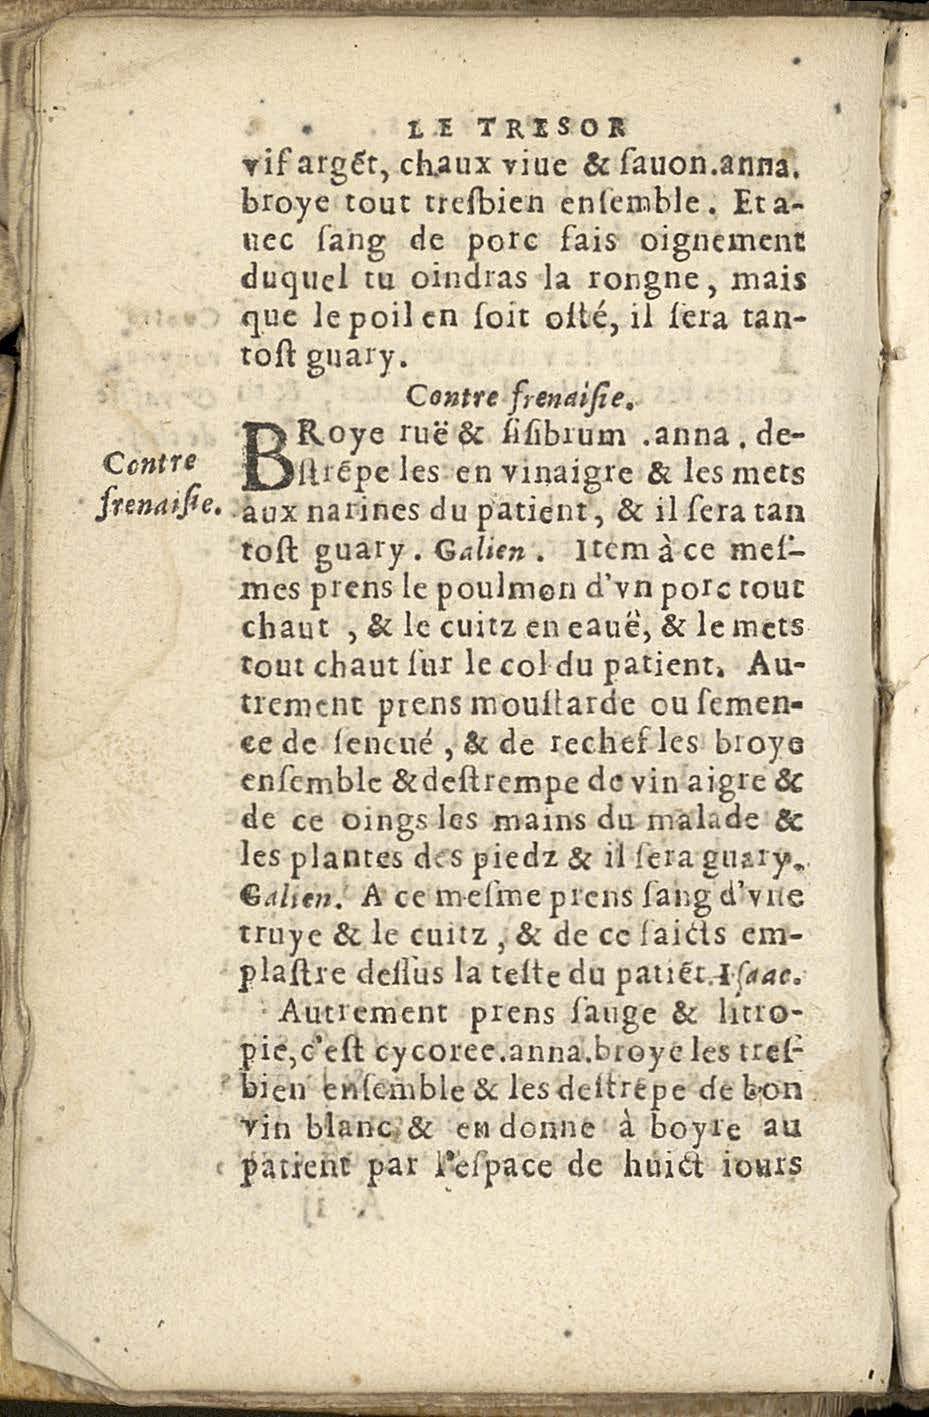 LE TRESOR
vif argẽt, chaux viue & ſauon.anna.
broye tout treſbien enſemble. Et a-
uec ſang de porc fais oignement
duquel tu oindras la rongne, mais
que le poil en ſoit oſté, il ſera tan-
toſt guary.
Contre frenaiſie.
Contre
frenaiſie.
BRoye ruë & ſiſibrum .anna. de-
ſtrẽpe les en vinaigre & les mets
aux narines du patient, & il ſera tan
toſt guary. Galien. Item à ce meſ-
mes prens le poulmon d'vn porc tout
chaut , & le cuitz en eauë, & le mets
tout chaut ſur le col du patient. Au-
trement prens mouſtarde ou ſemen-
ce de ſeneué , & de rechef les broye
enſemble & deſtrempe de vin aigre &
de ce oings les mains du malade &
les plantes des piedz & il ſera guary.
Galien. A ce meſme prens ſang d'vne
truye & le cuitz , & de ce faicts em-
plaſtre deſſus la teſte du patiẽt. Iſaac.
Autrement prens ſauge & litro-
pie, c'eſt cycoree.anna.broye les treſ-
bien enſemble & les deſtrẽpe de bon
vin blanc & en donne à boyre au
patient par l'eſpace de huict iours